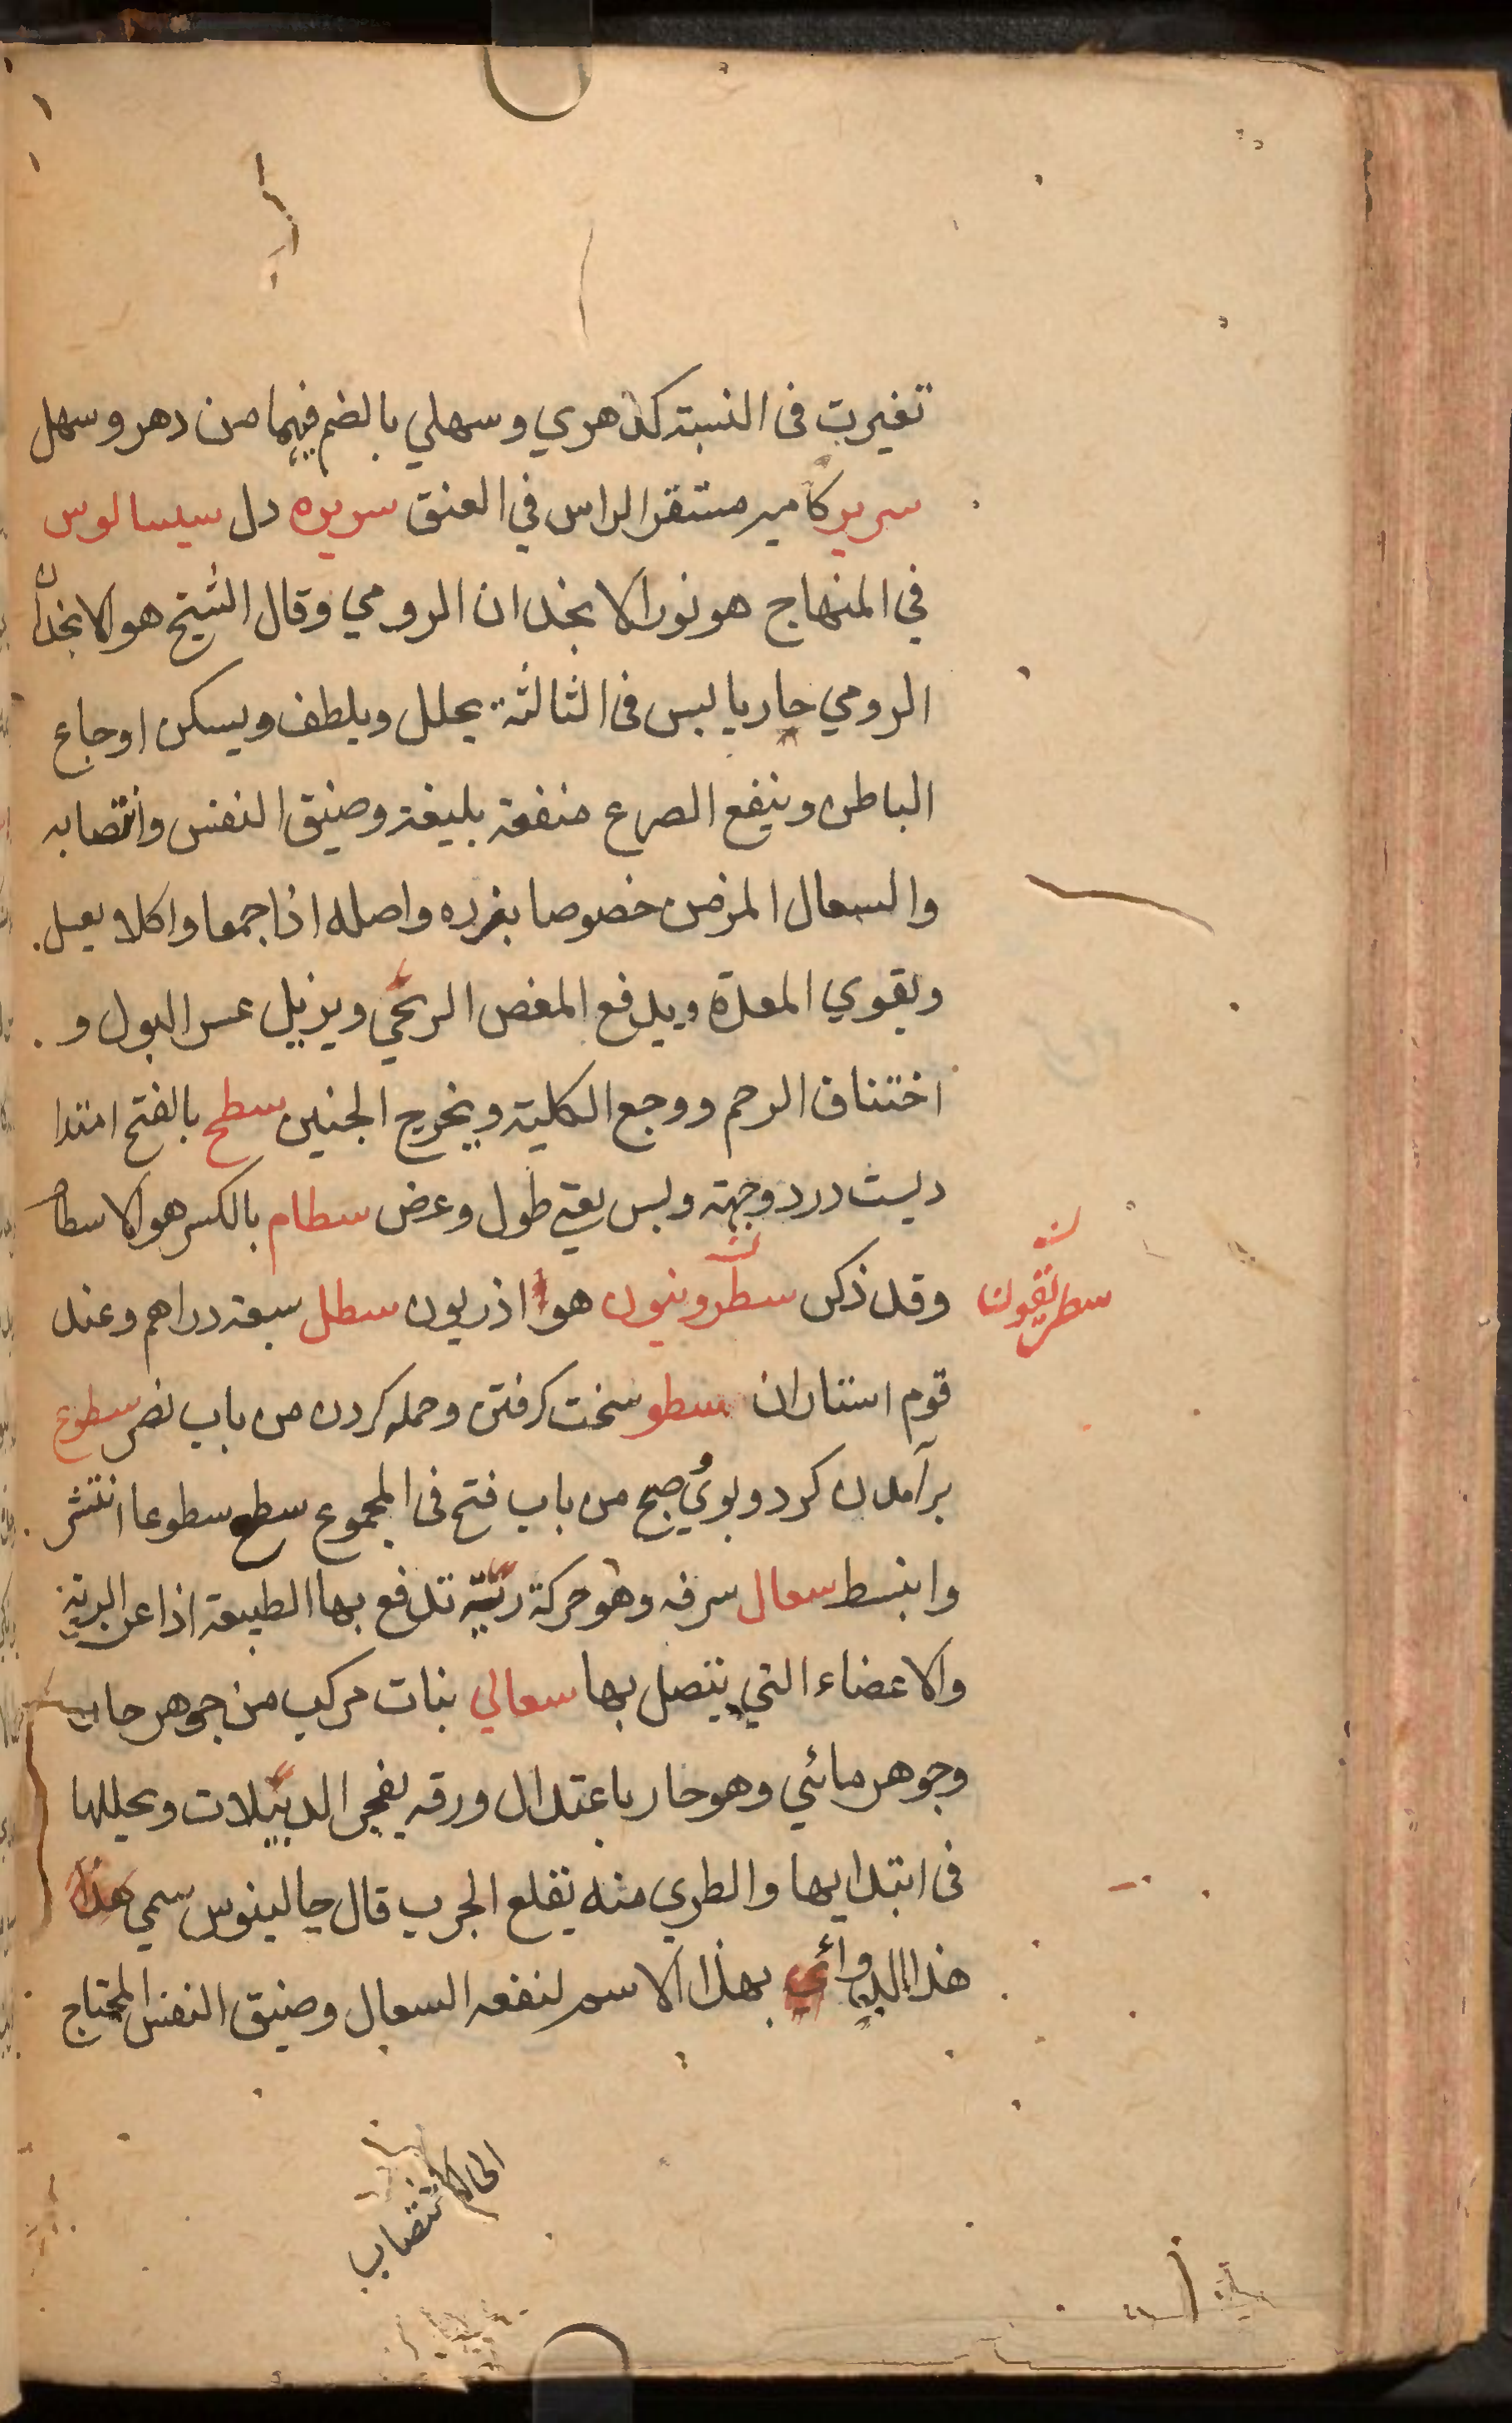 تغيرت فى النسبة كدهري وسهلي بالضم فيهما من دهر وسهل
سرير كامير مستقر الراس في العنق سريره دل سيسالوس
في المنهاج هو نور الانجدان الرومي وقال الشيخ هو الانجدان
الرومي حار يابس فى الثالثة يحلل ويلطف ويسكن اوجاع
الباطن وينفع الصرع منفعة بليغة وضيق النفس وانتصابه
والسعال المزمن خصوصا بغرده واصله اذا جمعا واكلا بعسل
ويقوي المعدة ويدفع المغص الريحي ويزيل عسر البول و
اختناق الرحم ووجع الكلية ويخرج الجنين سطح بالفتح امتدا
ديست در دو جهة وليس بعني طول وعرض سطام بالكسر هو الاسطام
وقد ذكر سطرونيون هو اذريون سطل سبعة دراهم وعند
سطريقون
قوم استاران سطو سخت كرفتن وحمله كردن من باب نصر سطوع
برآمدن كرد وبوي صبح من باب فتح فى المجموع سطع سطوعا انتشر
وانبسط سعال سرفه وهو حركة رئية تدفع بها الطبيعة اذا عن الرية
والاعضاء التي يتصل بها سعالي نبات مركب من جوهر حار
وجوهر مائي وهو حار باعتدال ورقه يفجر الدبيلات ويحللها
فى ابتدايها والطري منه يقلع الجرب قال جالينوس سمي هذا
هذا الدوائي بهذا الاسم لنفعه السعال وضيق النفس المحتاج
الى الانتصاب